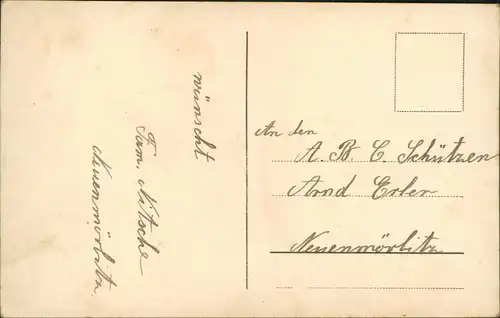 wünscht
Fam. Nitsche
Neuenmörbitz.
An den
A. B. C. Schützen
Arnd Erler
Neuenmörbitz